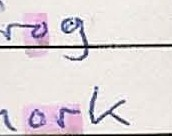 rog
ork